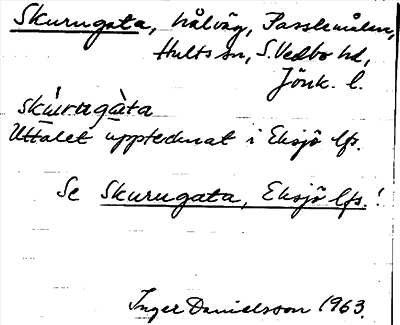 Skurugata, hålväg, Passlemålen,
Hults sn, S. Vedbo hd,
Jönk. l.
skúrugàta
Uttalet upptecknat i Eksjö lfs.
Se Skurugata, Eksjö lfs.!
Inger Danielsson 1963.